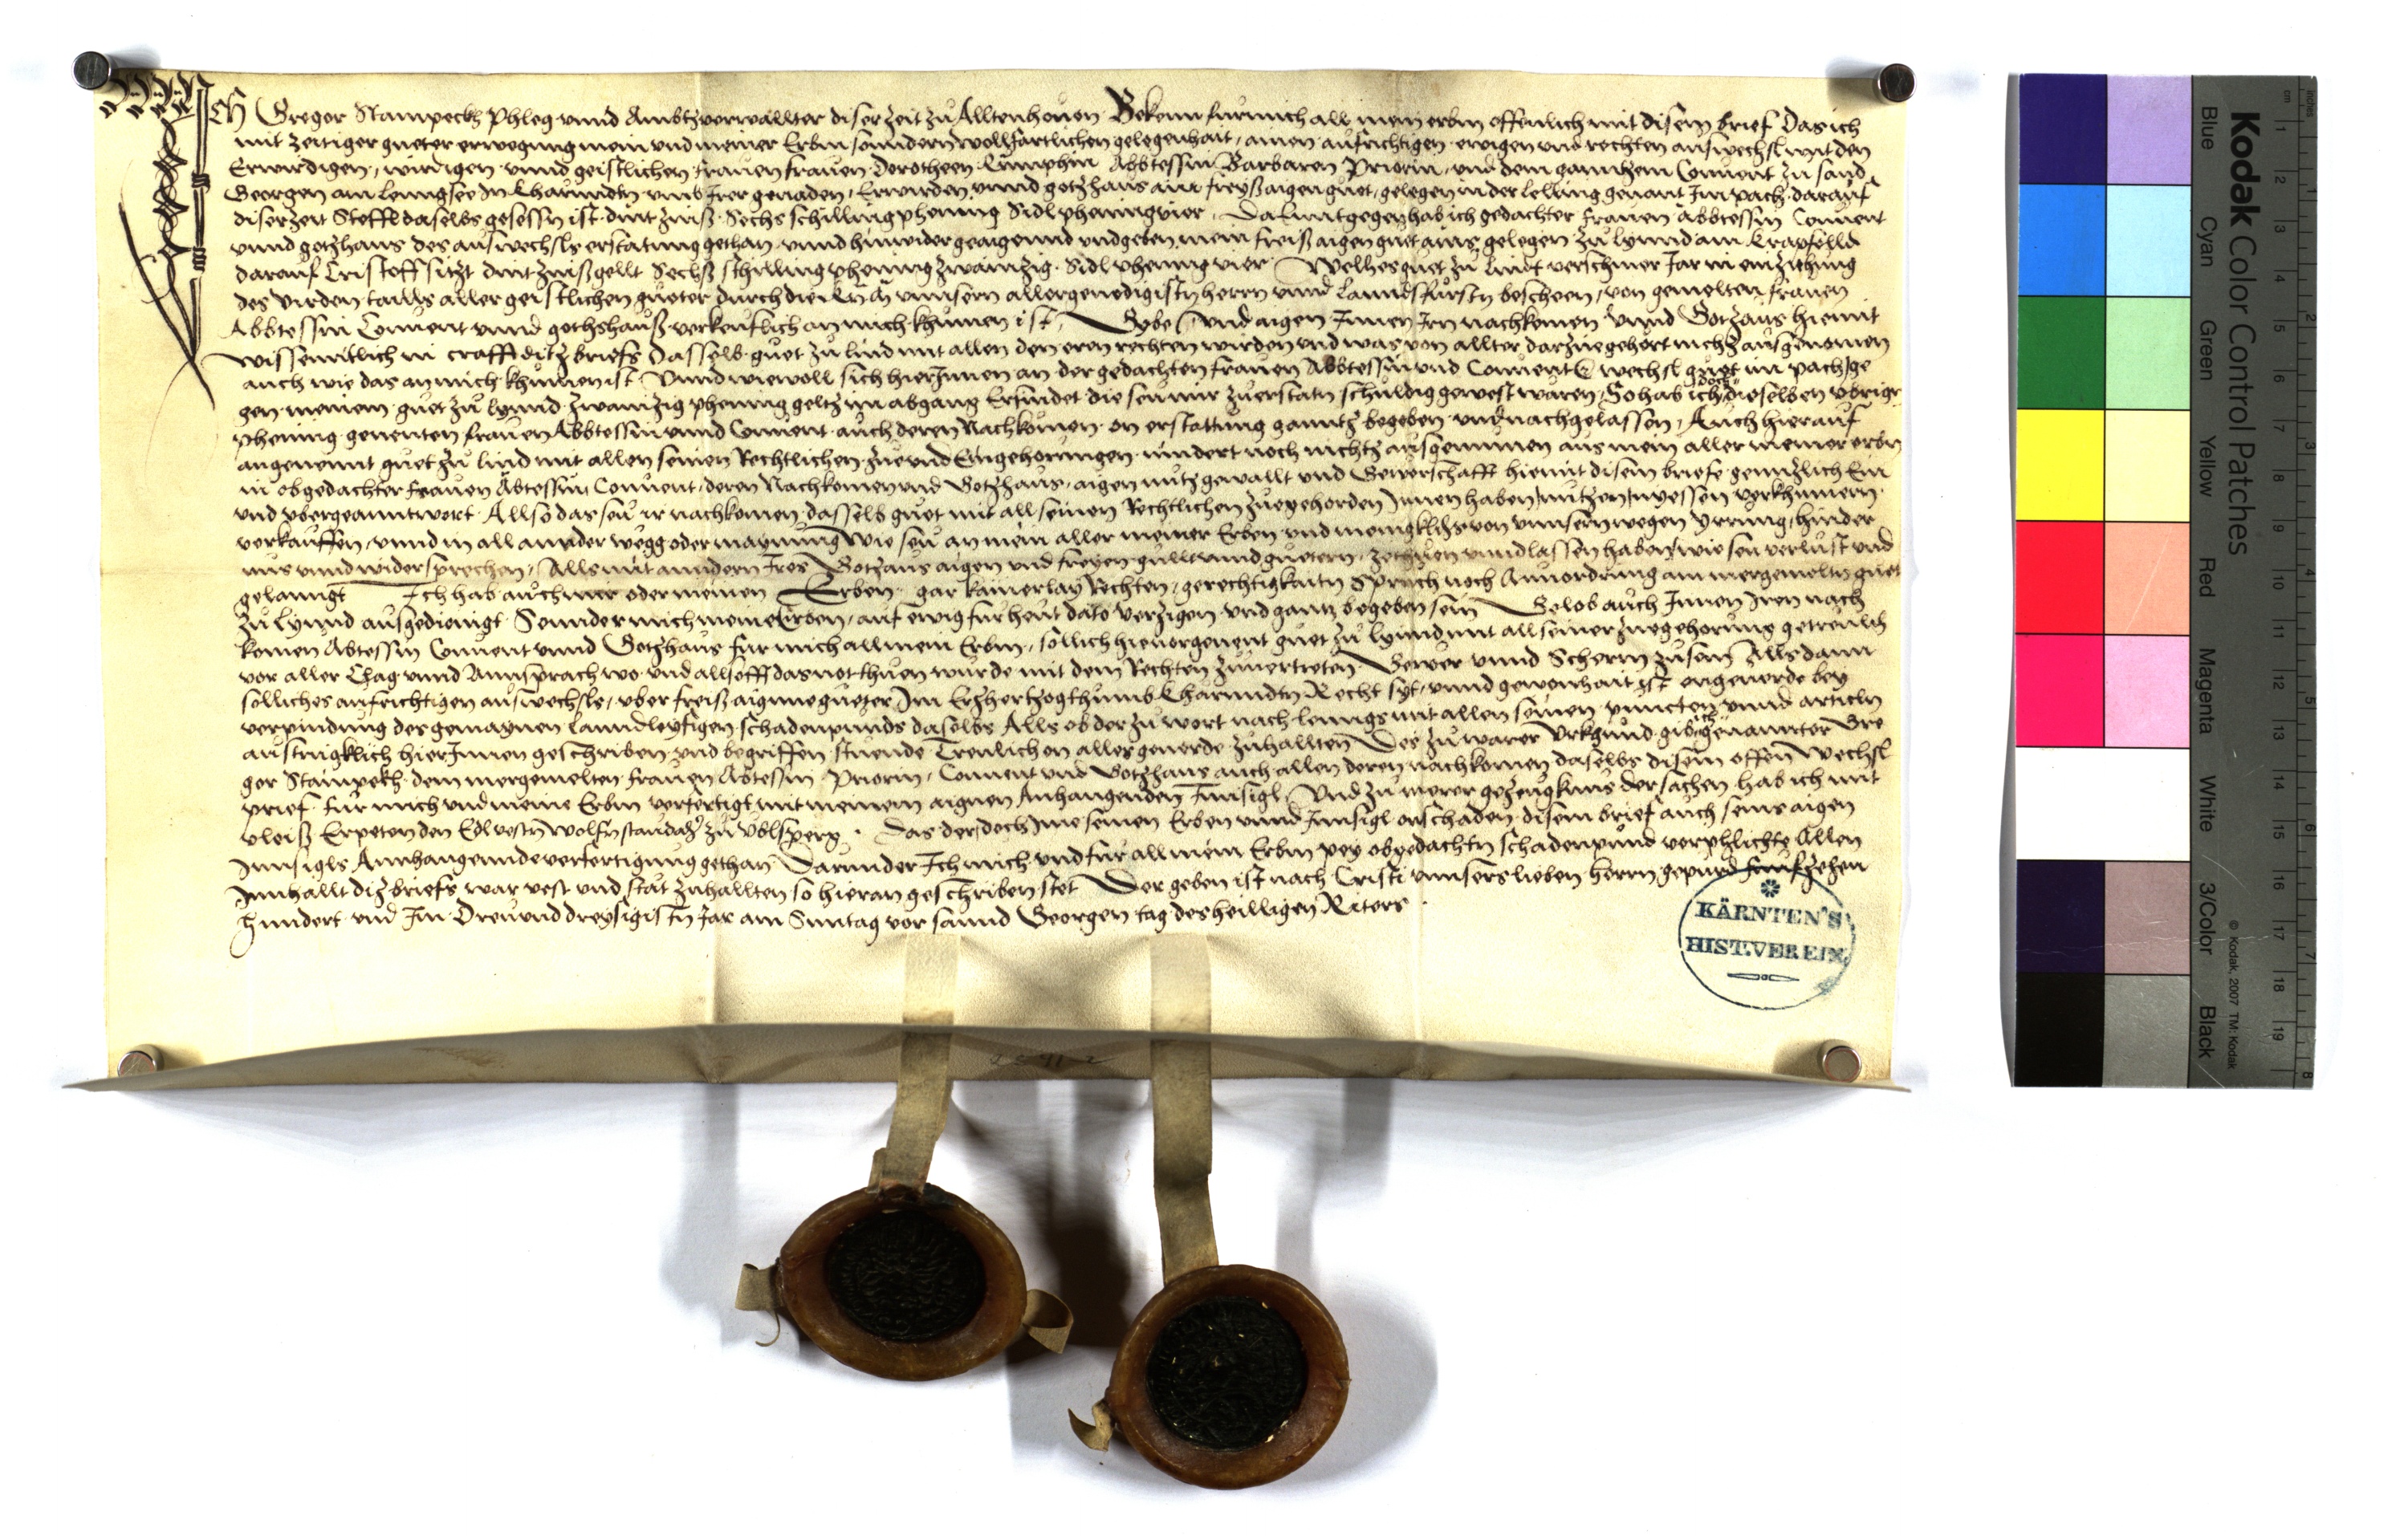 Ich Gregor Stampeckh Phleg vnnd Ambtzverwallter diser Zeit zů Alltenhouen Bekenn fůr mich all mein erbm offennlich mit disem brief Das ich
mit zeitiger gueter erwegung mein vnd meiner Erbm sonndern wolfartlichen gelegenhait, ainen aufrichtigen ewigen vnd rechten auswechsl mit den
Erwirdigen, wirdigen vnnd geistlichen frauen frauen Dorotheen Abbtessin Barbaren Priorin, vnd dem ganntzem Conuent zu sand
Georgen am Lenngsee In Kharnndtn vmb Irer genaden, Erwirden vnnd gotzhaus ain freyß aigen guet, gelegen in der Lölling genant Im pach darauf
diser zeit Steffl daselbs gesessn ist dint zinß Sechs schilling phening Sidl phening vier. Da enntgegen hab ich gedachter frauen Abbtessin Conuent
vnnd gotzhaus des auswechsls erstatung gethan vnnd hinwider geaigennd vnd geben mein freiß aigen guet ains gelegen zů Lynnd am Krapfelld
darauf Cristoff sitzt dint zinßgellt Sechß schilling phening zwainzig. Sidl phening vier Welhes guet zů Lindt verschiner Jar in einziehung
des virden taills aller geistlichen gůeter durch die vnnsern allergenedigistn herrn vnnd Lanndsfůrstn bescheen, von gemelten frauen
Abbtessin Conuent vnnd gothshauß verkeuflich an mich khumen ist, Gybe vnd aigen Innen Irn nachkomen vnnd Gotzhaus hiemit
wissenntlich in crafft ditz briefs Dasselb guet zů Lind mit allen den eren rechten wirden vnd was von allter darzue gehört nichtz ausgenomen
auch wie das an mich khumen ist Vnnd wiewoll sich hierInnen an der gedachten frauen Abbtessin vnd Conuent wechsl guet im pach ge
gen meinem guet zů Lynnd zwainzig phening geltz im abgang Erfindet die seu mir zůerstatn schuldig gewest waren, So hab ich doch dieselben vbrign
phening genenten frauen Abbtessin vnnd Conuent auch deren Nachkomen on erstattung ganntz begeben vnd nachgelassen, Auch hierauf
angenennt guet zů Lind mit allen seinen Rechtlichen zue vnd Eingehorungen nindert noch nichtz ausgenummen aus mein aller meiner erbn
in obgedachter frauen Abtessin Conuent, deren Nachkomen vnd Gotzhaus, aigen nutz gewallt vnd Gewerschafft hiemit disem briefe genntzlich Ein
vnd vbergeanntwort. Allso das seu ir nachkomen dasselb guet mit all seinen Rechtlichen zuegehorden Innen haben nutzen nyessen verkhumern
verkauffen, vnnd in all annder wegg oder maynung wie seu an mein aller meiner Erben vnd menigklichs von vnnsern wegen Yrrung, hinder
nus vnnd widersprechen, Alls mit anndern Ires Gotzhaus aigen vnd freyen gullt vnnd guetern, zethuen vnnd lassen haben wie seu verlust vnd
gelanngt Ich hab auch mir oder meinen Erben gar kainerlay Rechten, gerechtigkaitn Spruch noch Annordrung am mergemeltn guet
zů Lynnd ausgedienngt Sonnder mich meine Erben, auf ewig fur heut dato verzigen vnd gantz begeben sein Gelob auch Innen Iren nach
komen Abtessin Conuent vnnd Gotzhaus fur mich all mein Erbm, sollich hieuorgenent guet zů Lynnd mit all seiner zuegehorung getreulich
vor aller Clag vnnd Annsprach wo vnd als offt das not thuen wurde mit dem Rechten zuuertreten Gewer vnnd Scherm zů sein Alls dann
solliches aufrichtigen auswechsls, vber freiß aigne gueter Im Ertzhertzogthumb Kharnndtn Recht syt, vnnd gewonhait ist ongeuerde bey
verpindung des gemaynen Lanndleyfigen schadenpunds daselbs Alls ob der zu wort nach lenngs mit allen seinen puncten vnnd articln
austrugklich hierInnen geschriben vnd begriffen stuende Treulich on alles geuerde zuhallten Des zů warer Vrkhund gib ich genannter Gre
gor Stampekh dem mergemelten frauen Abtessin Priorin, Conuent vnd Gotzhaus auch allen deren nachkomen daselbs disem offen Wechsl
prief fur mich vnd meine Erbm verfertigt mit meinem aignen Anhangenden Innsigl, Vnd zu merer gezeugknus der sachen hab ich mit
vleiß Erpeten den Edl vestn Wolfn zu Das der doch Ime seinen Erben vnnd Innsigl on schaden disem brief auch seins aigen
Innsigls Annhangennde verfertigung gethan Darunder Ich mich vnd fur all mein Erbm pey obgedachtn schadenpund verphlichte Allen
Innhallt diz briefs war vest vnd stät zuhallten so hieran geschriben stet Der geben ist nach Cristi vnnsers lieben herrn gepurd funfzehen
hundert vnd Im Dreuunddreysigistn Jar am Suntag vor sannd Georgen tag des heilligen Riters.
KÄRNTEN'S
HIST. VEREIN.
Kodak Color Control Patches
Blue Cyan Green Yellow Red Magenta White 3/Color Black
© Kodak, 2007 TM: Kodak
inches 1 2 3 4 5 6 7 8
cm 1 2 3 4 5 6 7 8 9 10 11 12 13 14 15 16 17 18 19